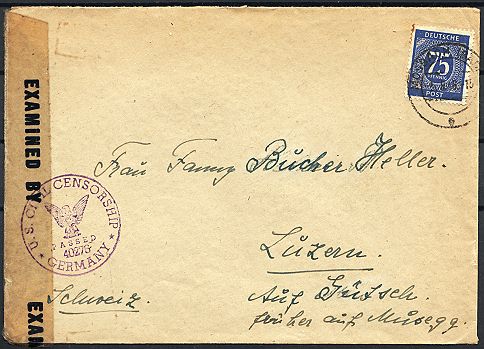 DEUTSCHE
75
PFENNIG
POST
EXAMINED BY
U.S. CIVIL CENSORSHIP
PASSED
40273
GERMANY
EXAM
Frau Fanny Bucher Heller.
Luzern.
Schweiz.
Auf Gütsch.
früher auf Musegg.